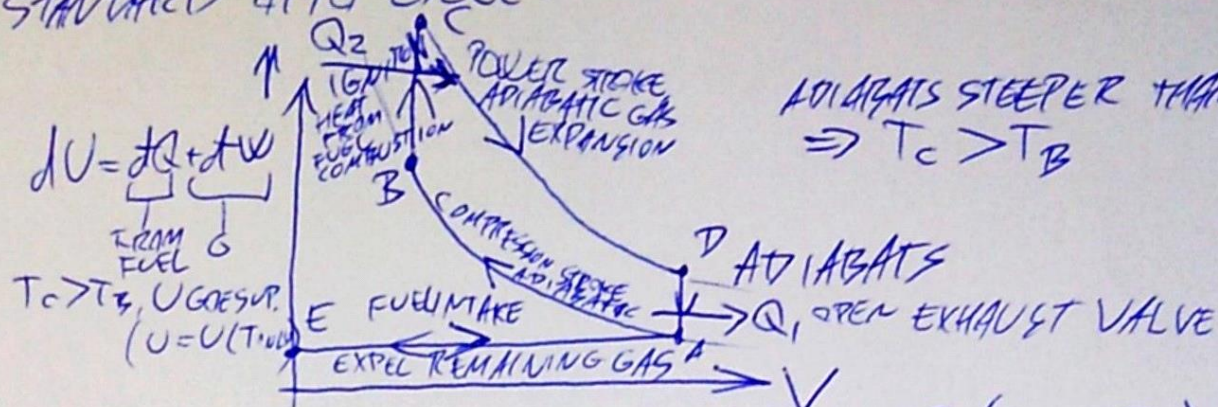 STANDARD OTTO CYCLE
C
Q2
IGNITION
HEAT
FROM
FUEL
COMBUSTION
POWER STROKE
ADIABATIC GAS
EXPANSION
ADIABATS STEEPER THAN
⇒ Tc > TB
dU = đQ + đW
FROM
FUEL
0
B
COMPRESSION STROKE
ADIABATIC
D
ADIABATS
Tc > TB, U GOES UP.
(U = U(T) ONLY
E
FUEL INTAKE
→ Q1 OPEN EXHAUST VALVE
EXPEL REMAINING GAS
A
V